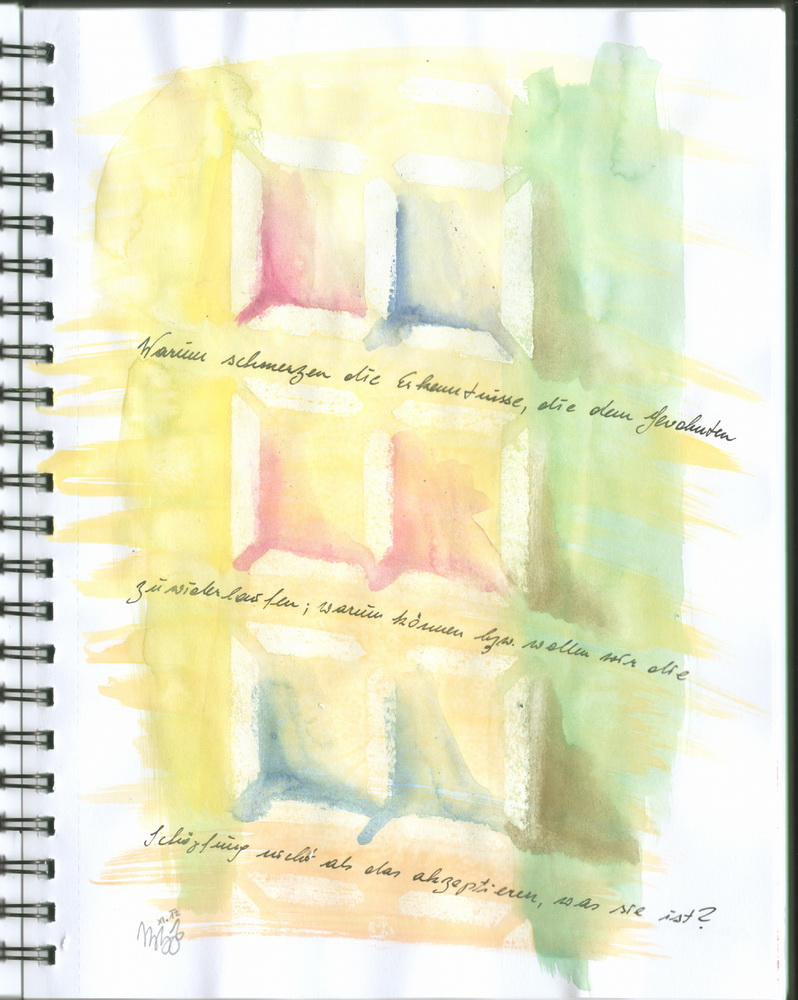 Warum schmerzen die Erkenntnisse, die dem Gewohnten
zuwiderlaufen; warum können bzw. wollen wir die
Schöpfung nicht als das akzeptieren, was sie ist?
XI.12